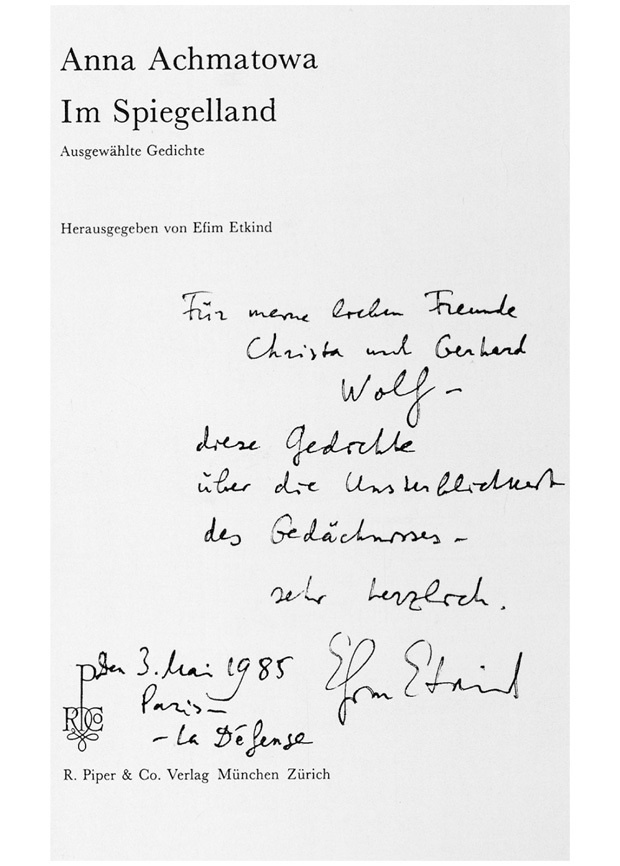 Anna Achmatowa
Im Spiegelland
Ausgewählte Gedichte
Herausgegeben von Efim Etkind
Für meine lieben Freunde
Christa und Gerhard
Wolf –
diese Gedichte
über die Unsterblichkeit
des Gedächnisses –
sehr herzlich.
Efim Etkind
Den 3. Mai 1985
Paris –
– La Défense
R. Piper & Co. Verlag München Zürich